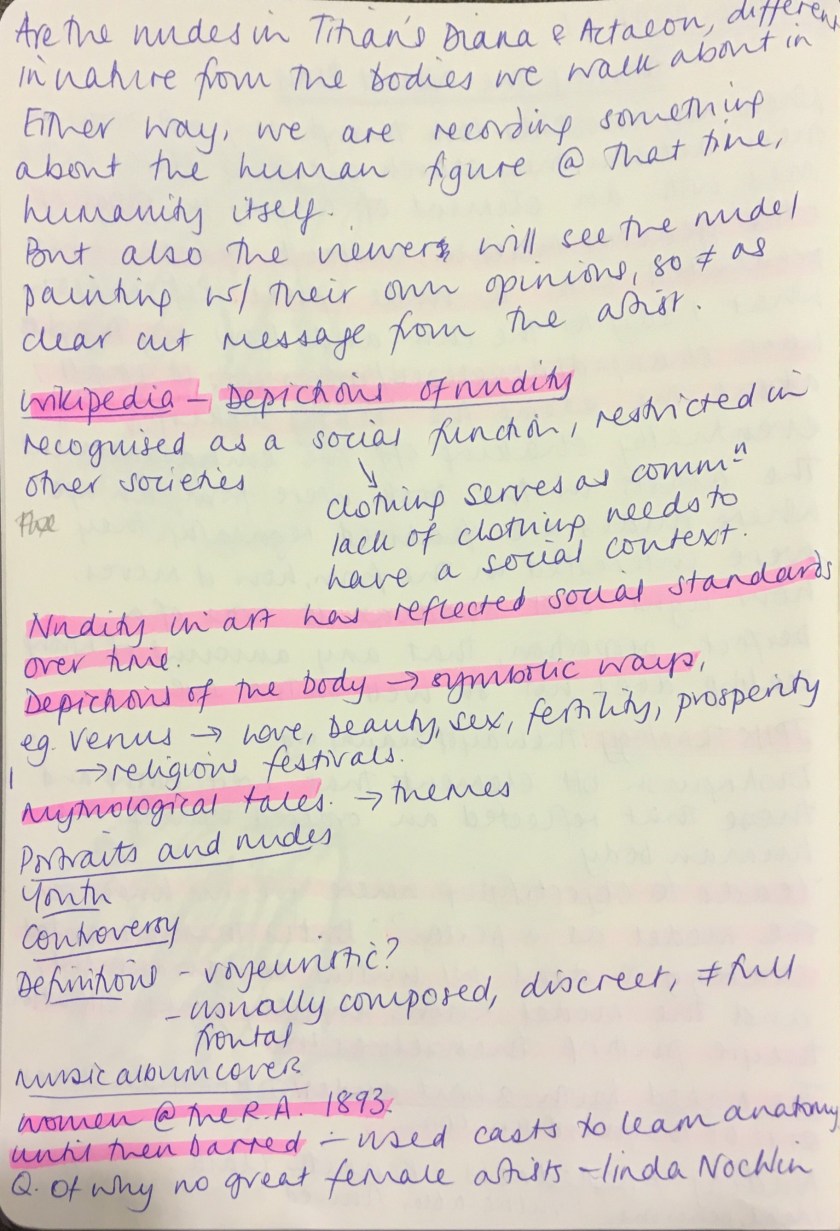 Are the nudes in Titian's Diana & Actaeon, different
in nature from the bodies we walk about in
Either way, we are recording something
about the human figure @ that time,
humanity itself.
But also the viewers will see the nude/
painting w/ their own opinions, so ≠ as
clear cut message from the artist.
Wikipedia - Depictions of nudity
recognised as a social function, restricted in
other societies
↘
clothing serves as commⁿ
lack of clothing needs to
have a social context.
Nudity in art has reflected social standards
over time.
Depictions of the body → symbolic ways,
eg. Venus → Love, beauty, sex, fertility, prosperity
→ religious festivals.
Mythological tales. → themes
Portraits and nudes
Youth
Controversy
Definitions - voyeuristic?
- usually composed, discreet, ≠ full
frontal
Music album cover
Women @ the R.A. 1893.
until then barred - used casts to learn anatomy
Q. of why no great female artists - linda Nochlin